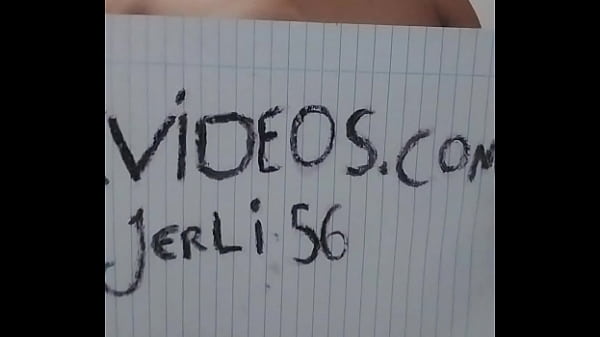 .VIDEOS.COM
JERLI 56